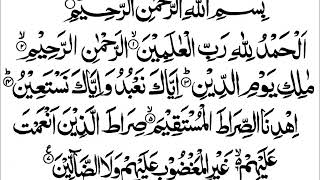 بِسْمِ اللّٰهِ الرَّحْمٰنِ الرَّحِيْمِ
اَلْحَمْدُ لِلّٰهِ رَبِّ الْعٰلَمِيْنَ ۙ﴿۱﴾ الرَّحْمٰنِ الرَّحِيْمِ ۙ﴿۲﴾
مٰلِكِ يَوْمِ الدِّيْنِ ؕ﴿۳﴾ اِيَّاكَ نَعْبُدُ وَاِيَّاكَ نَسْتَعِيْنُ ؕ﴿۴﴾
اِهْدِنَا الصِّرَاطَ الْمُسْتَقِيْمَ ۙ﴿۵﴾ صِرَاطَ الَّذِيْنَ اَنْعَمْتَ
عَلَيْهِمْ ۙ﴿۶﴾ غَيْرِ الْمَغْضُوْبِ عَلَيْهِمْ وَلَا الضَّآلِّيْنَ ﴿۷﴾